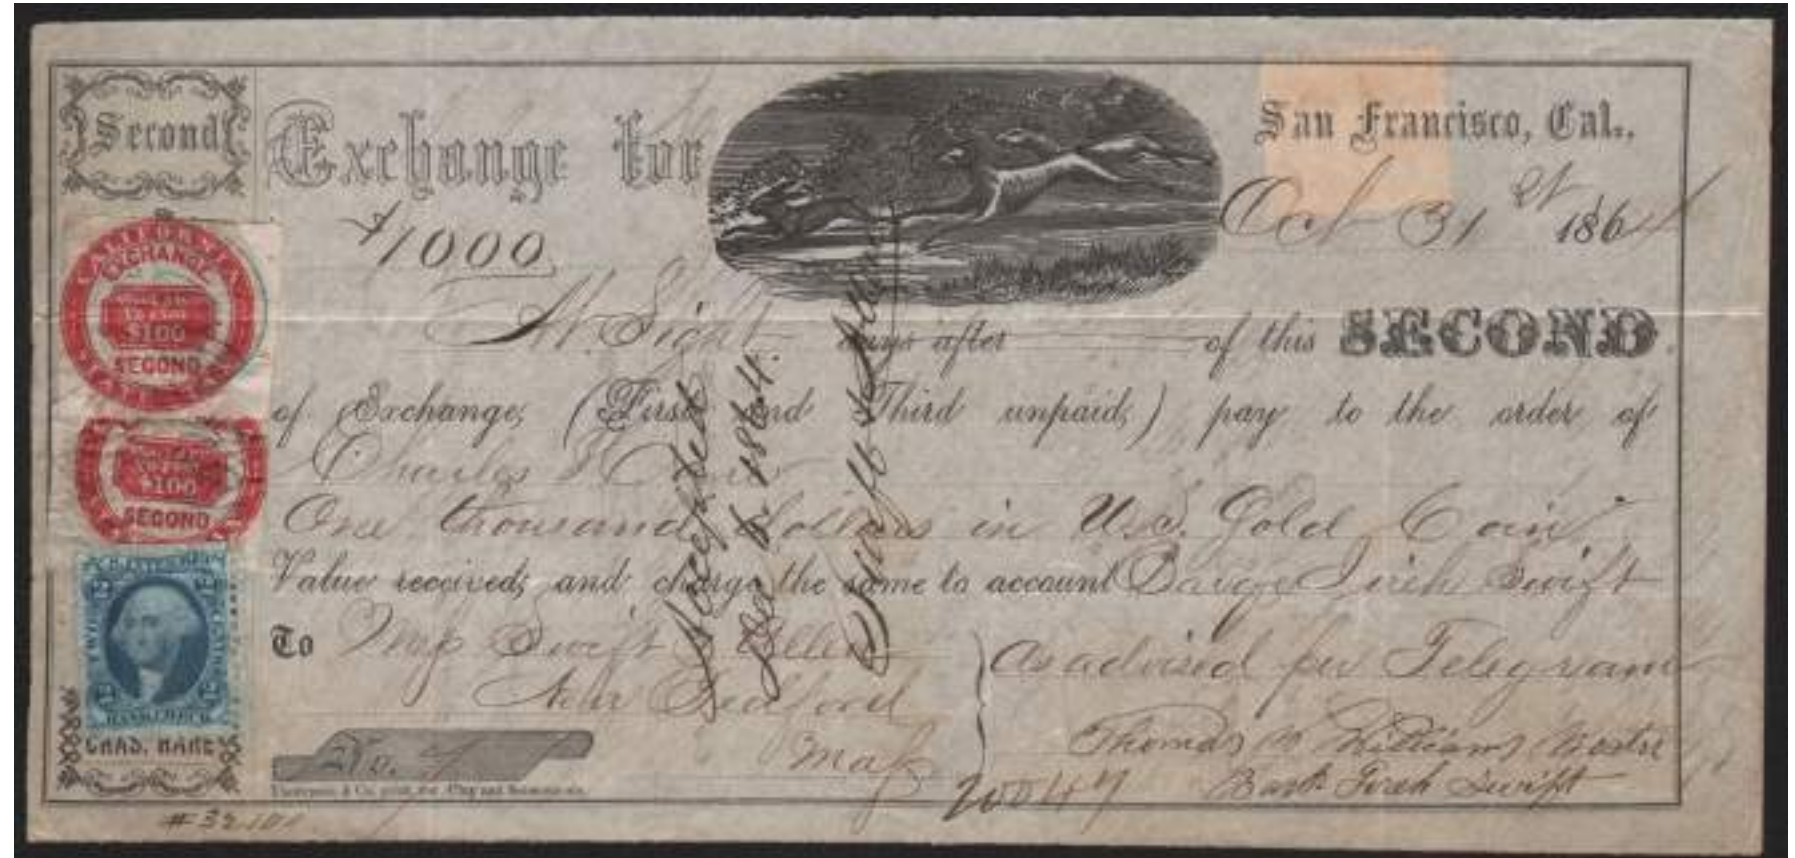 Second
Exchange for
San Francisco, Cal.,
Oct 31st 1864
$1000
At Sight days after of this SECOND
of Exchange, (First and Third unpaid,) pay to the order of
Charles
One thousand Dollars in U.S. Gold Coin
Value received, and charge the same to account Barque Jireh Swift
To Mess Swift & Allen
New Bedford
Mass
as advised per Telegram
Thomas W Williams Master
Bark Jireh Swift
No. 7
20047
#32101
Accepted
Dec 6. 1864.
EXCHANGE
$100
SECOND
$100
SECOND
BANK CHECK
CHAS. HARE